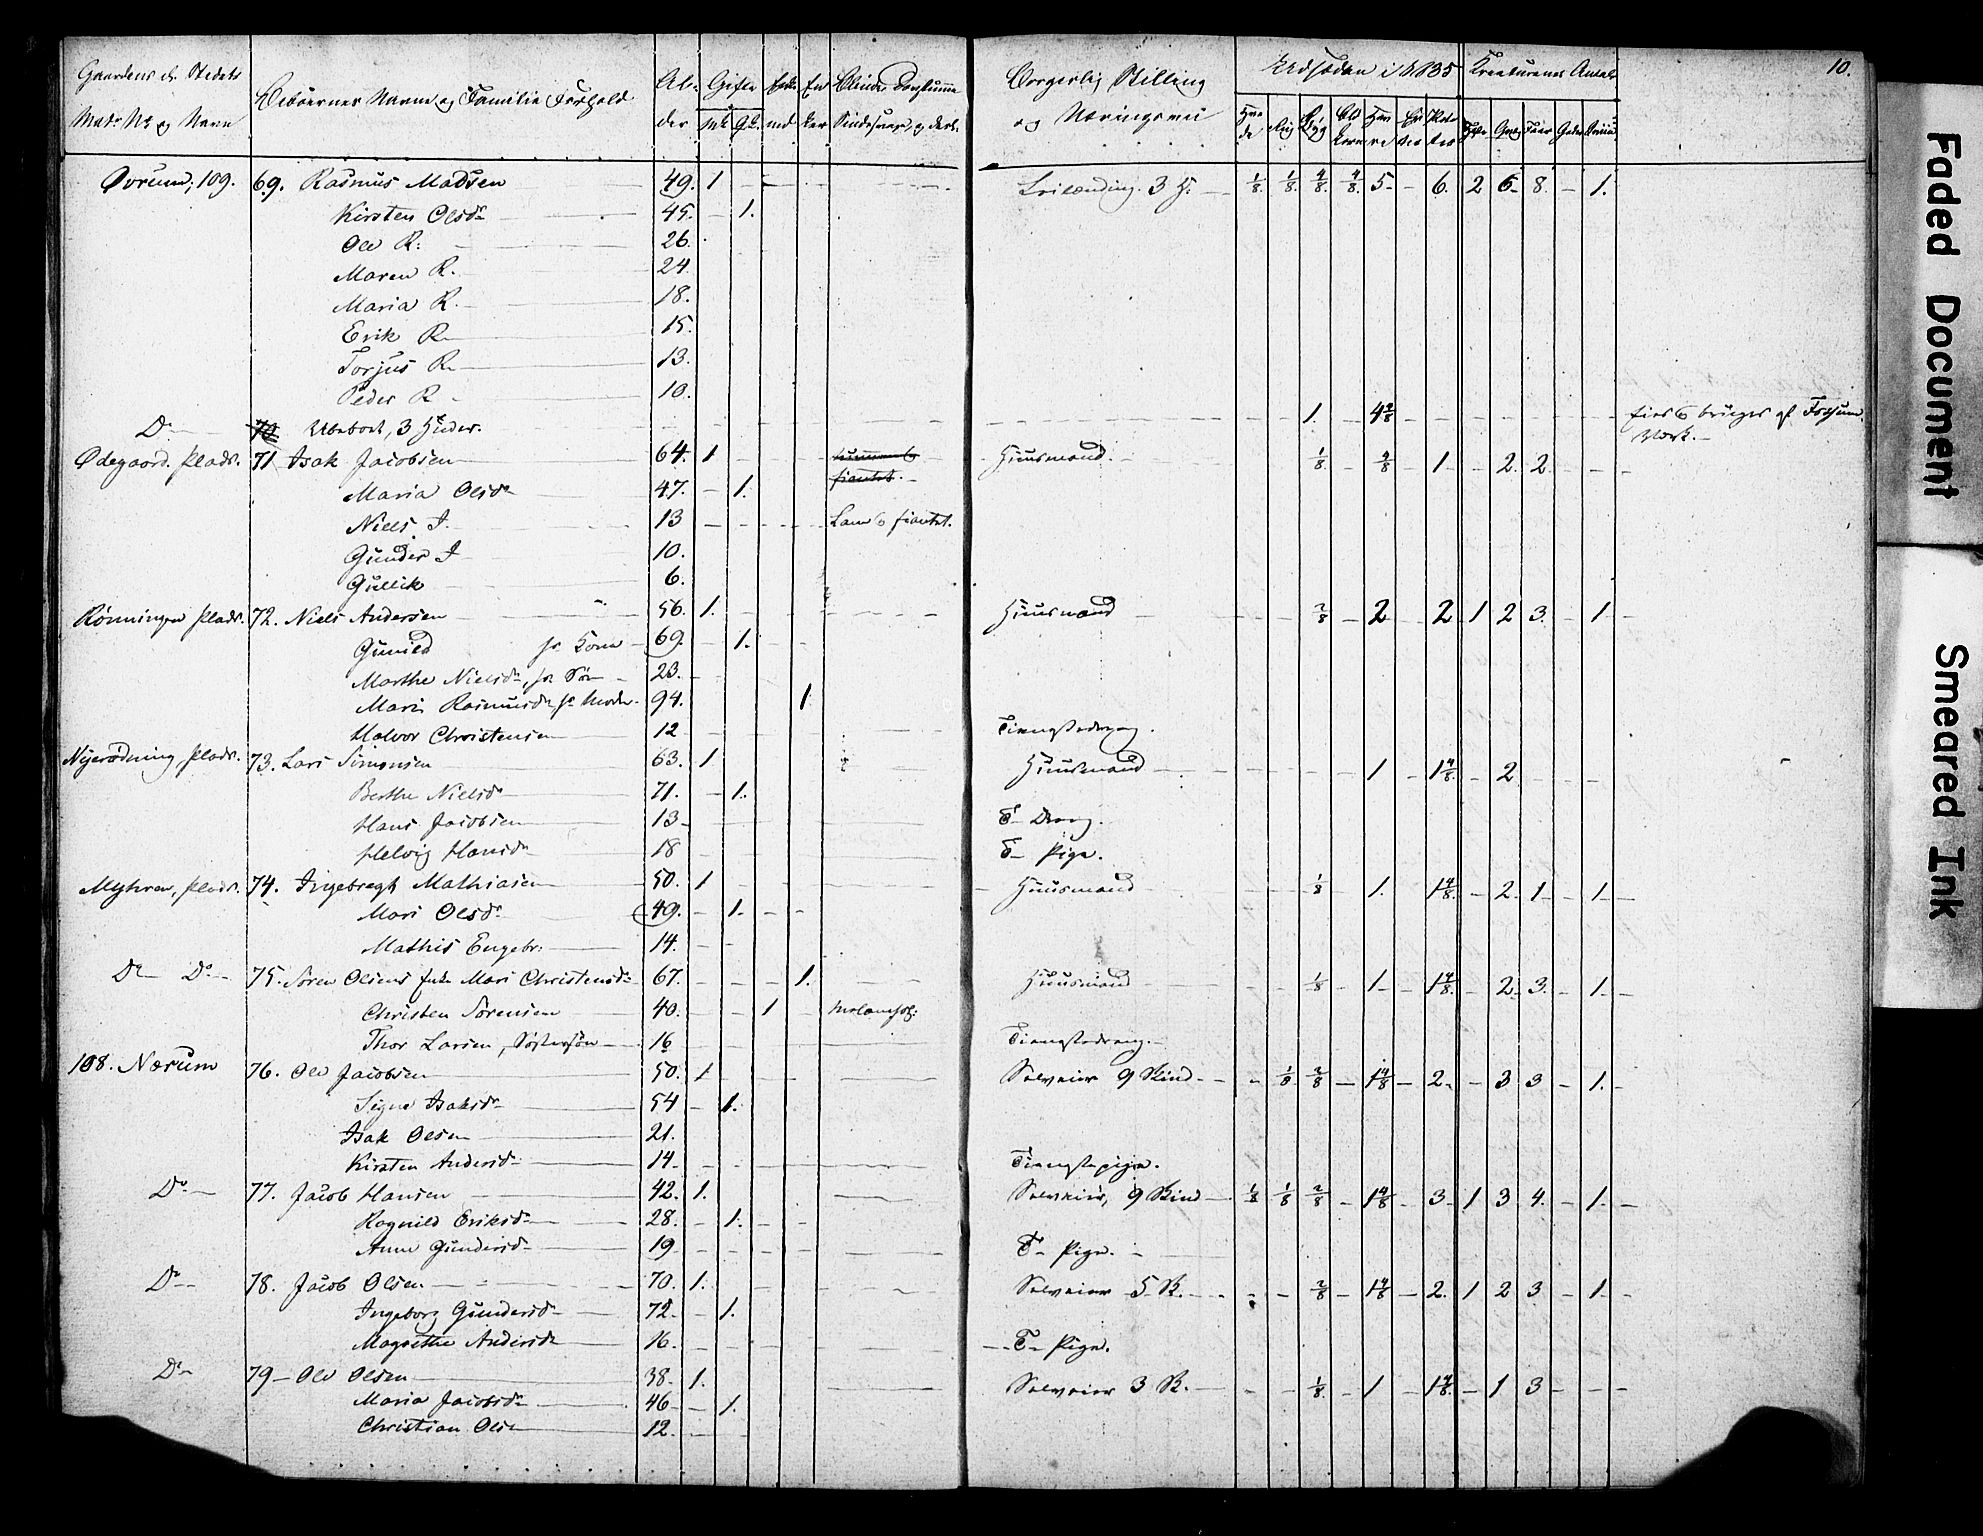 10.
Gaardens el. Stedets Beboernes Navne og Familie Forhold Al- Gifte Enke En Blinde Døvstumme Borgerlig Stilling Udsæden i 1835 Kreaturenes Antal
Matr No og Navn der Mk Qk. md ker Sindssvage, og Næringsvei Rug Byg Faar Geder Sviin
Øvrum, 109. 69. Rasmus Madsen 49. 1 Leilænding. 3 H. 1/8 1/8 4/8 4/8 5 6. 2 6 8. 1.
Kirsten Olsdr 45. 1.
Ole R. 26.
Maren R. 24.
Maria R. 18.
Erik R. 15.
Torjus R. 13.
Peder R 10.
Do 70 Ubeboet, 3 Huder. 1. 4 4/8 eies & bruges af Fossum
Værk.
Ødegaard. Plads. 71 Isak Jacobsen 64. 1 Huusmand. 1/8 4/8 1 2. 2.
Maria Olsdr 47. 1.
Niels J. 13 Lam &
Gunder J 10.
Gullik 6.
Rønningen Plads. 72. Niels Andersen 56. 1. Huusmand 2/8 2 2 1 2 3. 1
Gunild hs Kone 69. 1.
Marthe Nielsdr, 23.
Mari Rasmusdr hs Moder 94. 1
Halvor Christensen 12 Tienstedreng.
Nyerødning, Plads. 73. Lars Simonsen 63. 1 Huusmand 1 1 4/8. 2
Berthe Nielsdr 71. 1.
Hans Jacobsen 13 T- Dreng.
Helvig Hansdr 18 T- Pige.
Myhren, Plads. 74. Ingebregt Mathiasen 50. 1 Huusmand 1/8 1. 1 4/8. 2. 1 1
Mari Olsdr 49. 1.
Mathis Engebr: 14.
Do Do 75. Søren Olsens Enke Mari Christensdr 67. 1. Huusmand 1/8 1 1 4/8. 2. 3. 1
Christen Sørensen 40. 1 melancholsk:
Thor Larsen, Søstersøn 16 Tienstedreng.
108. Nærum 76. Ole Jacobsen 50. 1 Selveier 9 Skind 1/8 2/8 1 4/8 2. 3 3 1.
Signe Isaksdr 54 1.
Isak Olsen 21.
Kirsten Andersdr 14 Tienstepige.
Do 77. Jacob Hansen 42. 1. Selveier, 9 Skind 1/8 1/8 2/8 1 4/8 3. 1 3 4. 1
Ragnild Eriksdr 28. 1.
Anne Gundersdr 19 T- Pige.
Do 78. Jacob Olsen 70. 1. Selveier 5 S. 2/8 1 4/8 2. 1 2 3 1
Ingeborg Gundersdr 72 1.
Magrethe Andersdr 16. T- Pige.
Do 79 Ole Olsen 38. 1. Selveier 3 S. 1/8. 1 1 4/8. 1 3
Maria Jacobsdr 46 1.
Christian Olsen 12.
Faded Document
Smeared Ink